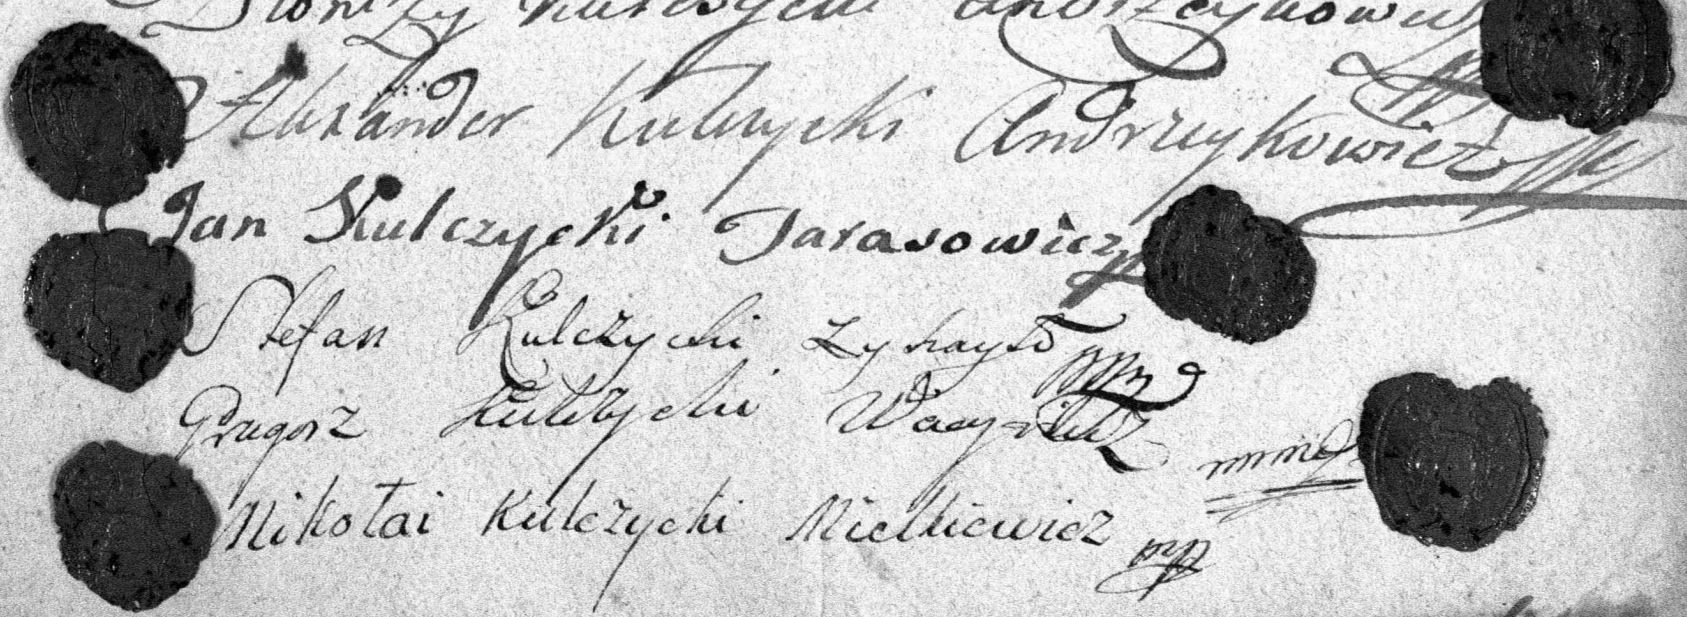 Kulczycki Andrzeykowicz
Alexander Kulczycki Andrzeykowicz
Jan Kulczycki Tarasowicz
Stefan Kulczycki
Grzegorz Kulczycki
Mikołai Kulczycki Mielkiewicz mp